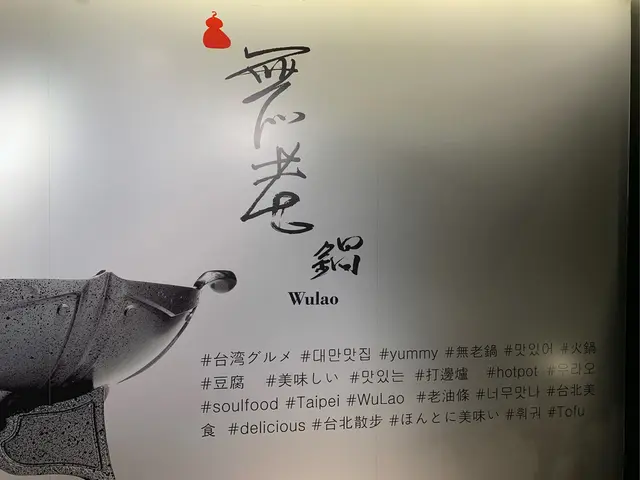 無老
鍋
Wulao
#台湾グルメ #대만맛집 #yummy #無老鍋 #맛있어 #火鍋
#豆腐 #美味しい #맛있는 #打邊爐 #hotpot #우라오
#soulfood #Taipei #WuLao #老油條 #너무맛나 #台北美
食 #delicious #台北散步 #ほんとに美味い #훠궈 #Tofu